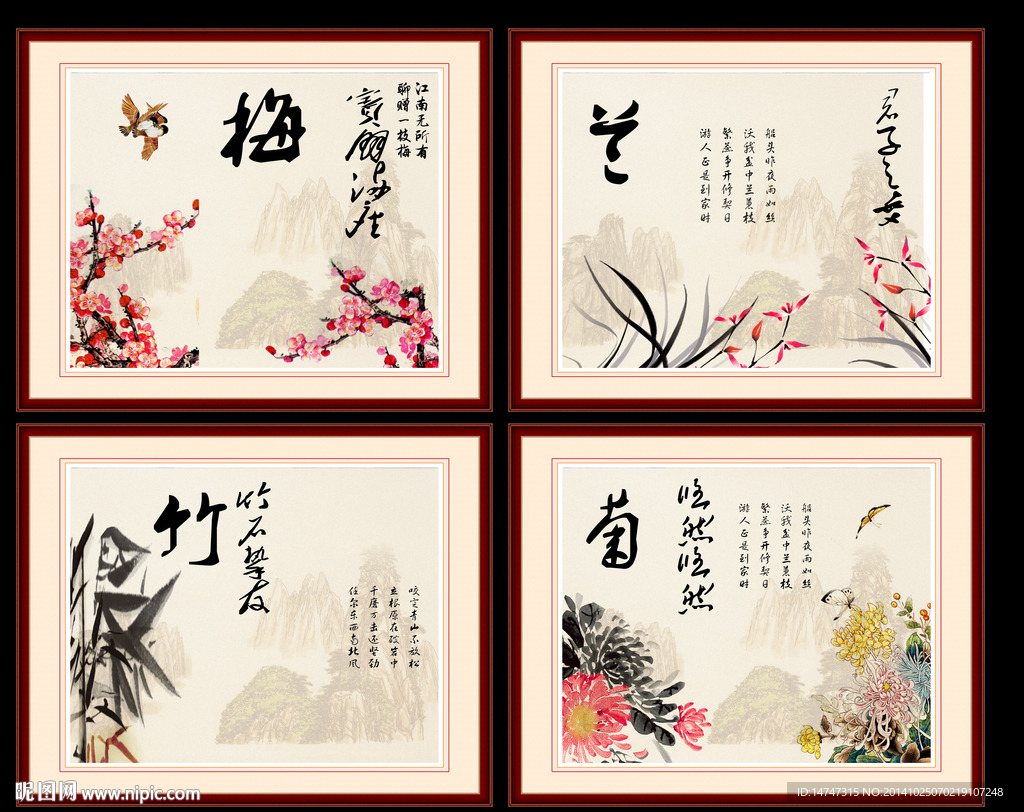 梅
江南无所有
聊赠一枝梅
兰
君子之
船头昨夜雨如丝
沃我盆中兰蕙枝
繁蕊争开修禊日
游人正是到家时
竹
竹石挚友
咬定青山不放松
立根原在破岩中
千磨万击还坚劲
任尔东西南北风
菊
悠然悠然
船头昨夜雨如丝
沃我盆中兰蕙枝
繁蕊争开修禊日
游人正是到家时
昵图网 www.nipic.com
ID:14747315 NO:20141025070219107248